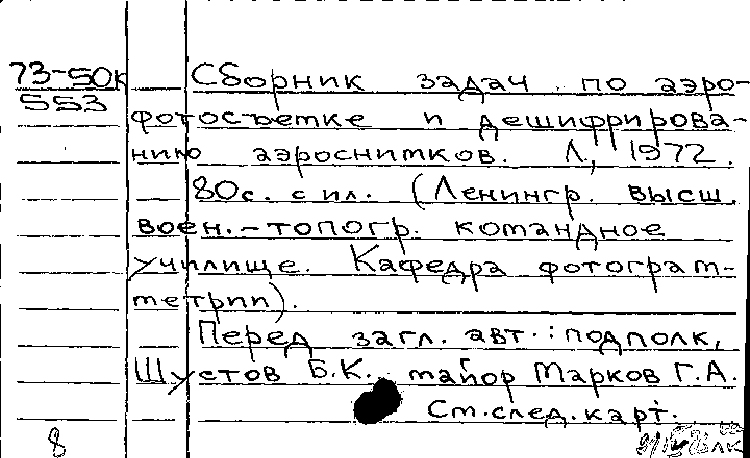 73-50к
553
Сборник задач по аэро-
фотосъемке и дешифрирова-
нию аэроснимков. Л., 1972.
80с. с ил. (Ленингр. высш.
воен.-топогр. командное
училище. Кафедра фотограм-
метрии).
Перед загл. авт.: подполк.
Шустов Б.К. майор Марков Г.А.
См. след. карт.
8